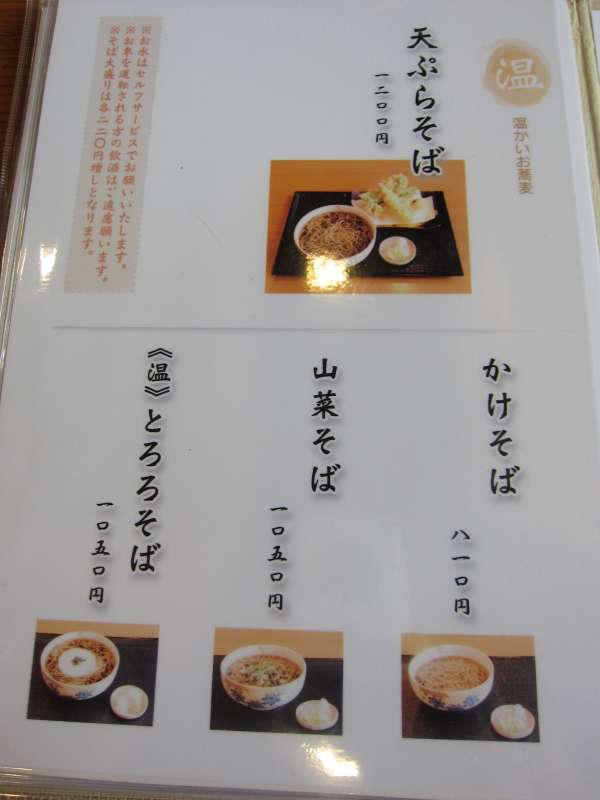 温
温かいお蕎麦
天ぷらそば
一二〇〇円
※お水はセルフサービスでお願いいたします。
※お車を運転される方の飲酒はご遠慮願います。
※そば大盛りは各二二〇円増しとなります。
かけそば
八一〇円
山菜そば
一〇五〇円
《温》とろろそば
一〇五〇円